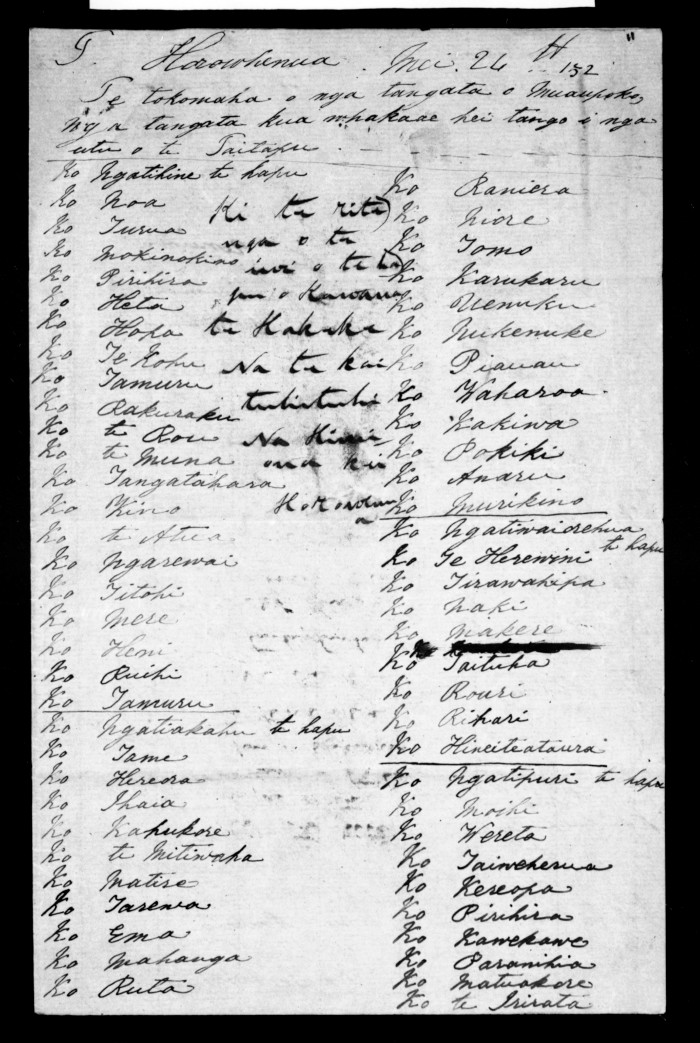 Horowhenua Mei 24 th 152
Te tokomaha o nga tangata o Muaupoko,
Nga tangata kua whakaae hei tango i nga
utu o te Taitapu
Ko Ngatihine te hapu
Ko Noa
Ko Turua
Ko Mokinokino
Ko Pirihira
Ko Heta
Ko Hopa
Ko Te Kohu
Ko Tamuru
Ko Rakuraku
Ko te Rou
Ko te Muna
Ko Tangatahara
Ko Kino
Ko te Atua
Ko Ngarewai
Ko Titohi
Ko Mere
Ko Heni
Ko Ruihi
Ko Tamuru
Ko Ngatiakahu te hapu
Ko Tame
Ko Hireora
Ko Ihaia
Ko Kahukore
Ko te Mitiwaha
Ko Matire
Ko Tarewa
Ko Ema
Ko Mahanga
Ko Ruta
Ki te rita
nga o te
iwi o te ha
pu o Kawaru
te Hakeke
Na te kai
tuhituhi
Na Himi
ona ki
Ko Raniera
Ko Niore
Ko Tomo
Ko Karukaru
Ko Uenuku
Ko Nukenuke
Ko Piauau
Ko Waharoa
Ko Kakiwa
Ko Pokiki
Ko Anaru
Ko Murikino
Ko Ngatiwaiorehua
te hapu
Ko Te Herewini
Ko Tirawahipa
Ko Naki
Ko Makere
Ko Taituha
Ko Rouri
Ko Rihari
Ko Hineiteataurai
Ko Ngatipuri te hapu
Ko Moihi
Ko Wereta
Ko Taiweherua
Ko Kereopa
Ko Pirihira
Ko Kawekawe
Ko Paranihia
Ko Matuakore
Ko te Irirata